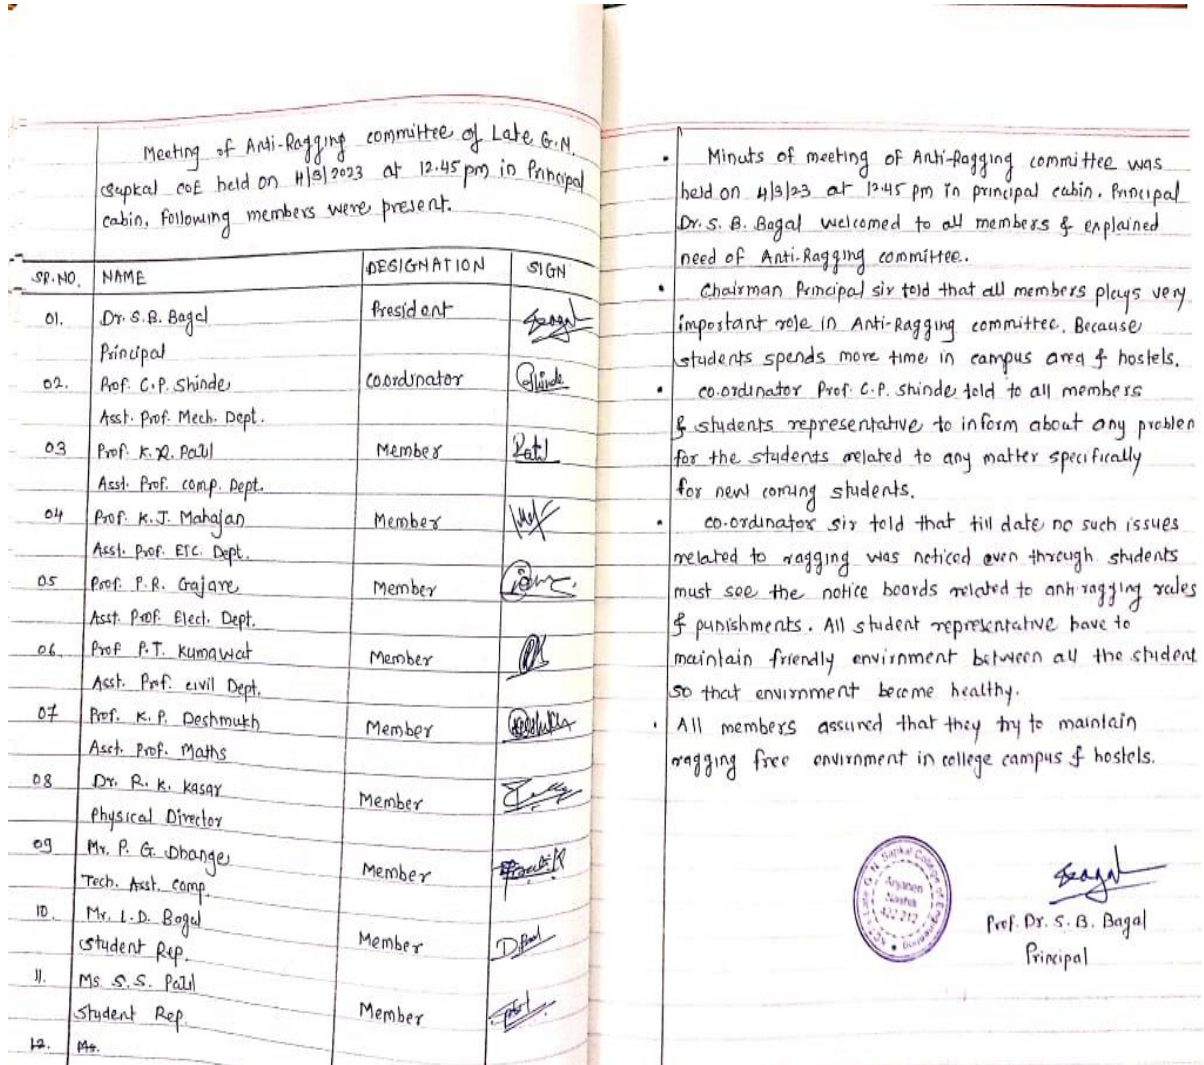 Meeting of Anti-Ragging committee of Late G.N.
Sapkal COE held on 4/3/2023 at 12.45 pm in Principal
cabin. following members were present.
SR.NO. NAME DESIGNATION SIGN
01. Dr. S.B. Bagal President
Principal
02. Prof. C.P. Shinde Coordinator
Asst. Prof. Mech. Dept.
03 Prof. K.R. Patil Member
Asst. Prof. comp. Dept.
04 Prof. K.J. Mahajan Member
Asst. Prof. ETC. Dept.
05 Prof. P.R. Gajare Member
Asst. Prof. Elect. Dept.
06 Prof P.T. Kumawat Member
Asst. Prof. civil Dept.
07 Prof. K.P. Deshmukh Member
Asst. Prof. Maths
08 Dr. R.K. Kasar Member
Physical Director
09 Mr. P.G. Dhange Member
Tech. Asst. comp.
10. Mr. L.D. Bagul Member
Student Rep.
11. Ms. S.S. Patil Member
Student Rep.
12.
• Minuts of meeting of Anti-Ragging committee was
held on 4/3/23 at 12.45 pm in principal cabin. Principal
Dr. S. B. Bagal welcomed to all members & explained
need of Anti-Ragging committee.
• Chairman Principal sir told that all members plays very
important role in Anti-Ragging committee. Because
students spends more time in campus area & hostels.
• co.ordinator Prof. C.P. Shinde told to all members
& students representative to inform about any problem
for the students related to any matter specifically
for new coming students.
• co-ordinator sir told that till date no such issues
related to ragging was noticed even through students
must see the notice boards related to anti-ragging rules
& punishments. All student representative have to
maintain friendly envirnment between all the student
so that envirnment become healthy.
• All members assured that they try to maintain
ragging free envirnment in college campus & hostels.
Late G. N. Sapkal College of Engineering
Nashik
422 212
Prof. Dr. S. B. Bagal
Principal